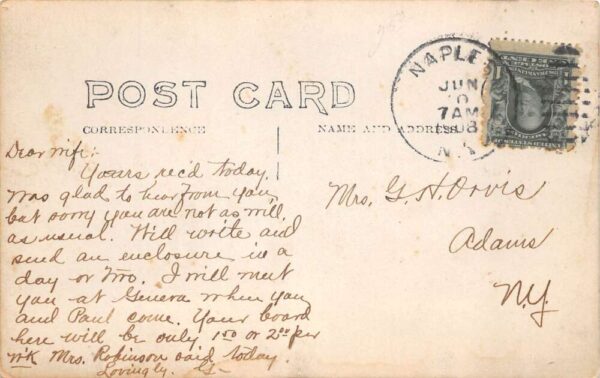 POST CARD
CORRESPONDENCE
NAME AND ADDRESS
NAPLES
JUN
7AM
1908
N.Y.
Dear wife:-
Yours rec'd today,
was glad to hear from you,
but sorry you are not as well
as usual. Will write and
send an enclosure in a
day or two. I will meet
you at Geneva when you
and Paul come. Your board
here will be only 1.50 or 2.00 per
w'k Mrs. Robinson said today.
Lovingly. G-
Mrs. G. H. Orvis
Adams
N.Y.